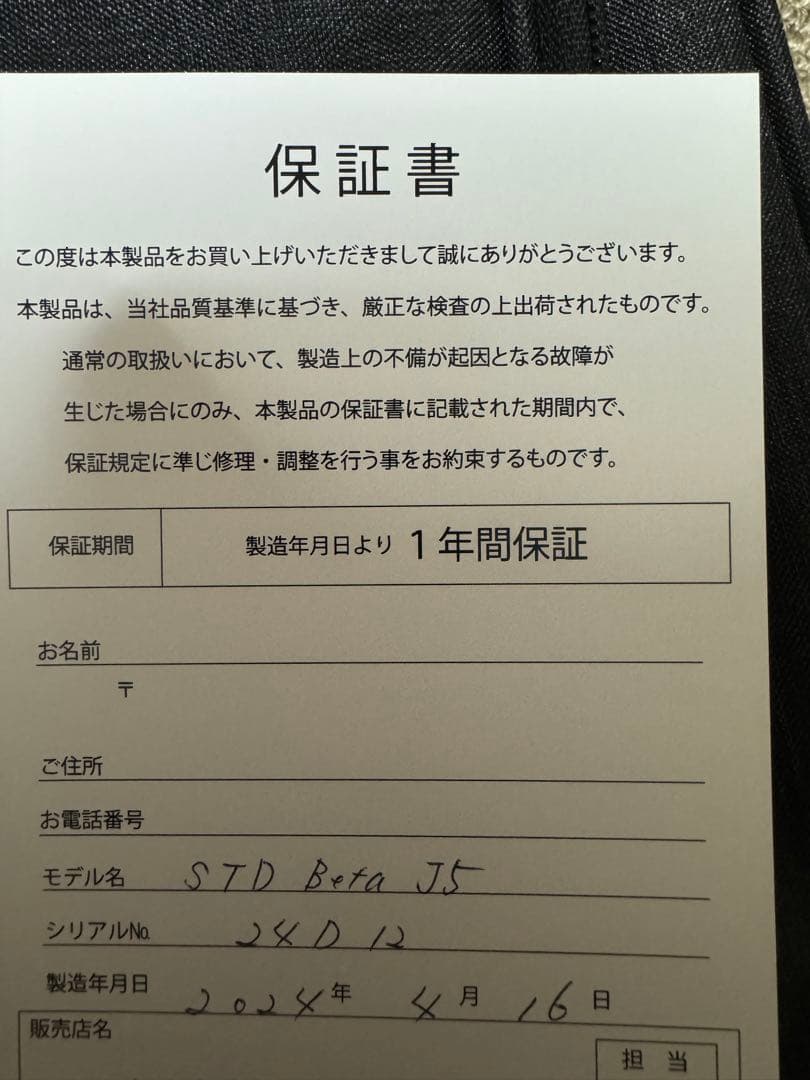 保証書
この度は本製品をお買い上げいただきまして誠にありがとうございます。
本製品は、当社品質基準に基づき、厳正な検査の上出荷されたものです。
通常の取扱いにおいて、製造上の不備が起因となる故障が
生じた場合にのみ、本製品の保証書に記載された期間内で、
保証規定に準じ修理・調整を行う事をお約束するものです。
保証期間 製造年月日より 1年間保証
お名前
〒
ご住所
お電話番号
モデル名 STD Beta J5
シリアルNo. 24D12
製造年月日 2024年 4月 16日
販売店名
担 当